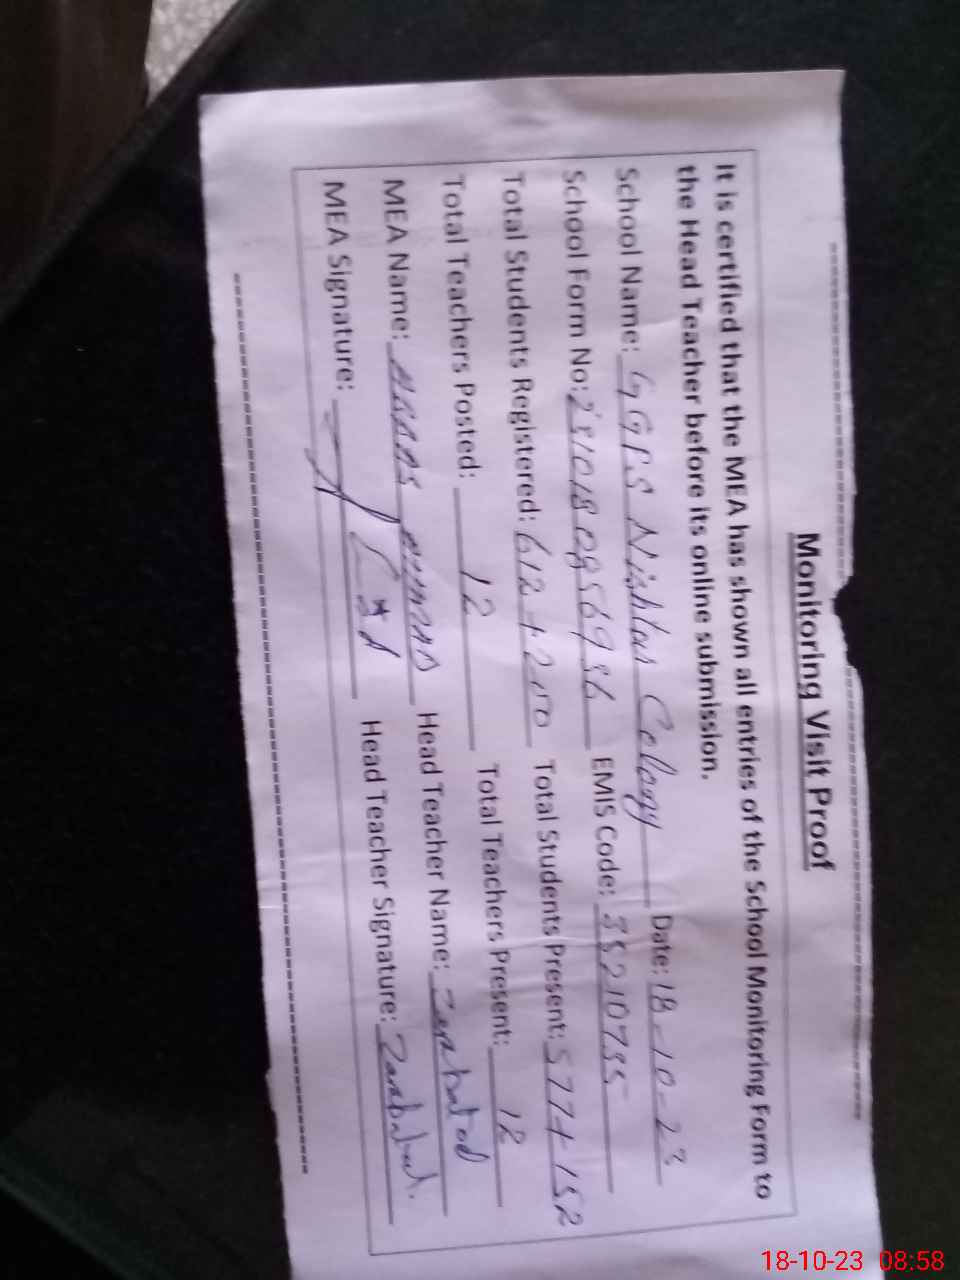 Monitoring Visit Proof
It is certified that the MEA has shown all entries of the School Monitoring Form to
the Head Teacher before its online submission.
School Name: GGPS Nishtar Colony Date: 18-10-23
School Form No: EMIS Code:
Total Students Registered: 612 + 200 Total Students Present: 577 + 152
Total Teachers Posted: 12 Total Teachers Present: 12
MEA Name: Head Teacher Name:
MEA Signature: Head Teacher Signature:
18-10-23 08:58